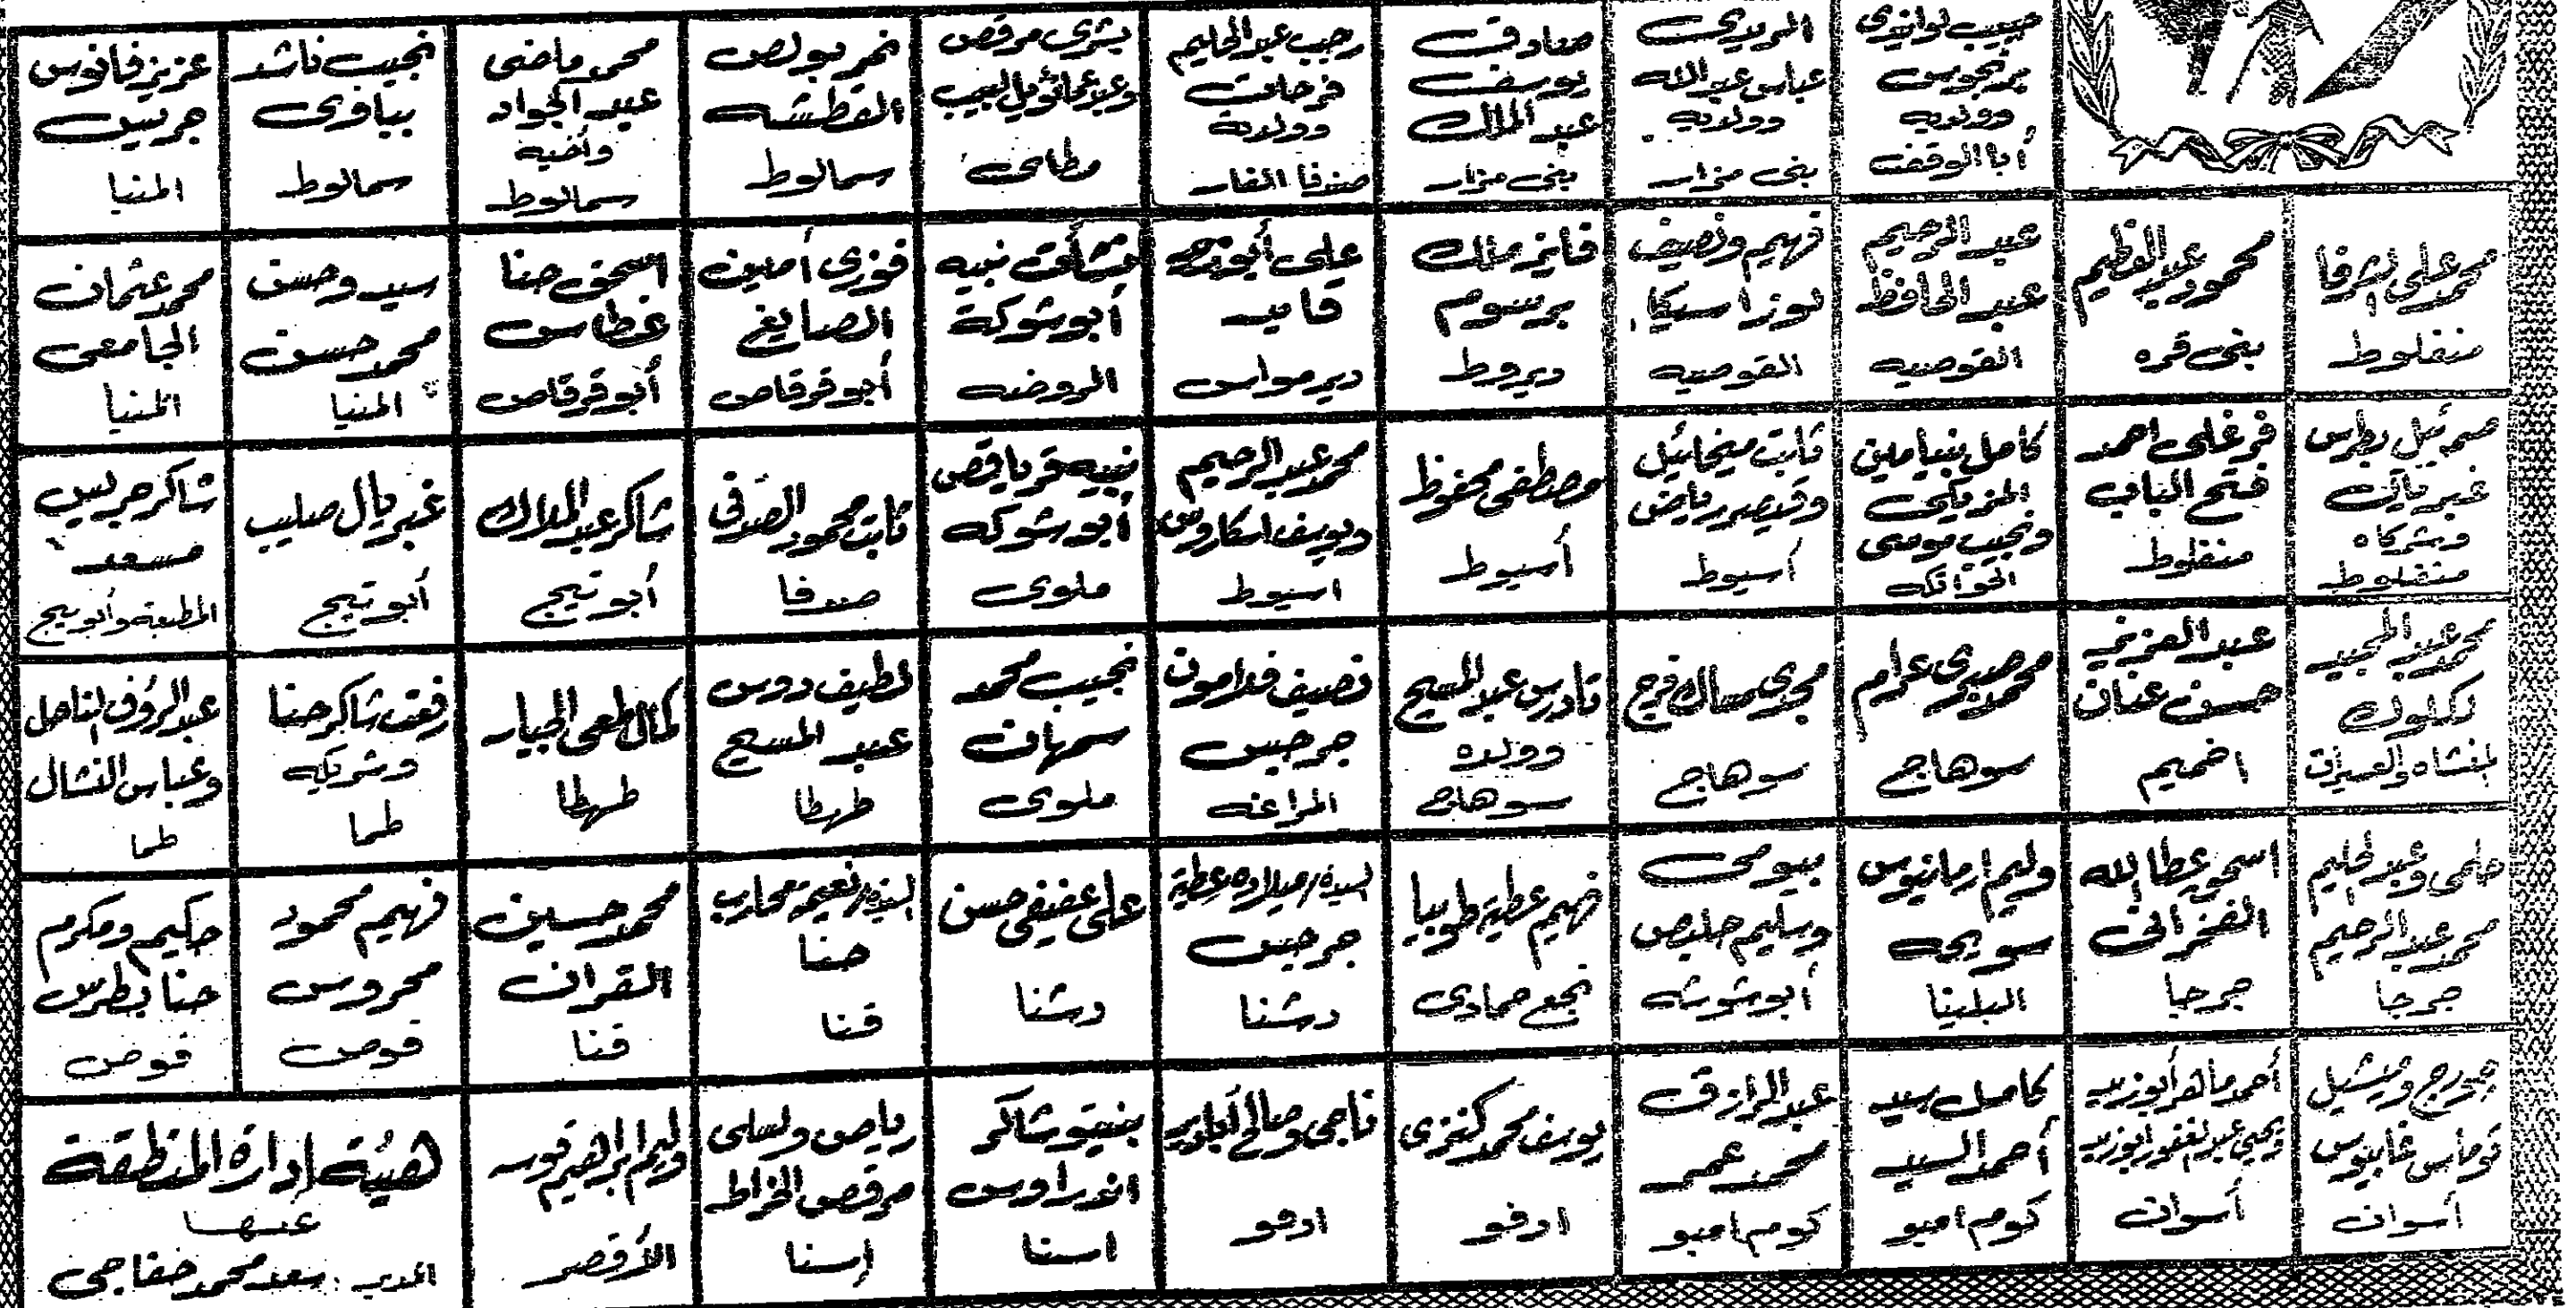 حبيب لوندى
برنجوس
وولديه
أبا الوقف
المريدى
عباس عبد الله
وولديه
بنى مزار
صادق
يوسف
عبد الملاك
بنى مزار
رجب عبد الحليم
فرحات
وولده
صندفا الفار
بشرى مرقص
وعبد عمانوئيل لبيب
مطاى
نمر بولص
القطشه
سمالوط
محمد ماضى
عبد الجواد
وأخيه
سمالوط
نجيب ناشد
بباوى
سمالوط
عزيز فانوس
جريس
المنيا
محمد على الشرفا
منفلوط
محمود عبد العظيم
بنى قره
عبد الرحيم
عبد الحافظ
القوصيه
فهيم ونصيف
لوزا سيكا
القوصيه
فايز ملك
برسوم
ديروط
على أبو زيد
قايد
ديرمواس
نشأت نبيه
أبو شوكة
الروضه
فوزى أمين
الصايغ
أبو قرقاص
اسحق حنا
غطاس
أبو قرقاص
سيد وحسن
محمد حسن
المنيا
محمد عثمان
الجامعى
المنيا
بطرس
غبريال
وشركاه
منفلوط
فرغلى احمد
فتح الباب
منفلوط
كامل بنيامين
المزيكى
ونجيب موسى
الحواتكه
ثابت ميخائيل
وقيصر رياض
أسيوط
مصطفى محفوظ
أسيوط
محمد عبد الرحيم
ويوسف اسكاروس
اسيوط
نبيه قرياقص
أبو شوكه
ملوى
ثابت محمود الصدفى
صدفا
شاكر عبد الملاك
أبو تيج
غبريال صليب
أبو تيج
شاكر جريس
مسعد
المطيعة وأبو تيج
محمد عبد المجيد
لكلوك
المنشاه والعسيرات
عبد العزيز
حسن عنان
اخميم
محمد صبرى عرام
سوهاج
مجدى متاك فرج
سوهاج
تادرس عبد المسيح
وولده
سوهاج
نصيف فلامون
جرجس
المراغه
نجيب محمد
سمهان
ملوى
لطيف دوس
عبد المسيح
طهطا
كمال طمى الجيار
طهطا
رفعت شاكر حنا
وشريكه
طما
عبد الرؤف
وعباس النشال
طما
حلمى وعبد الحليم
محمد عبد الرحيم
جرجا
اسحق عطا الله
الفخرانى
جرجا
وليم ارمانيوس
سويحه
البلينا
بيومى
وسليم حليص
أبو شوشه
فهيم عطية طوبيا
نجع حمادى
السيدة/ ميلاده عطية
جرجس
دشنا
على عفيفى حسن
دشنا
السيدة/ نعيمة محارب
حنا
قنا
محمد حسين
القران
قنا
فهيم محمود
محروس
قوص
حكيم ومكرم
حنا بطرس
قوص
جورج وميشيل
توماس غابيوس
أسوان
أحمد ماهر أبو زيد
ويحيى عبد الغفور أبو زيد
أسوان
كامل سيد
أحمد السيد
كوم امبو
عبد الرازق
محمد عمر
كوم امبو
يوسف محمد كنزى
ادفو
ناجى وصالح
ادفو
بنيتو شاكر
اندراوس
اسنا
رياض ولسلى
مرقص الخراط
إسنا
وليم ابراهيم قوسه
الأقصر
هيئة إدارة المنطقة
عنها
المدير : سعد محمد خفاجى